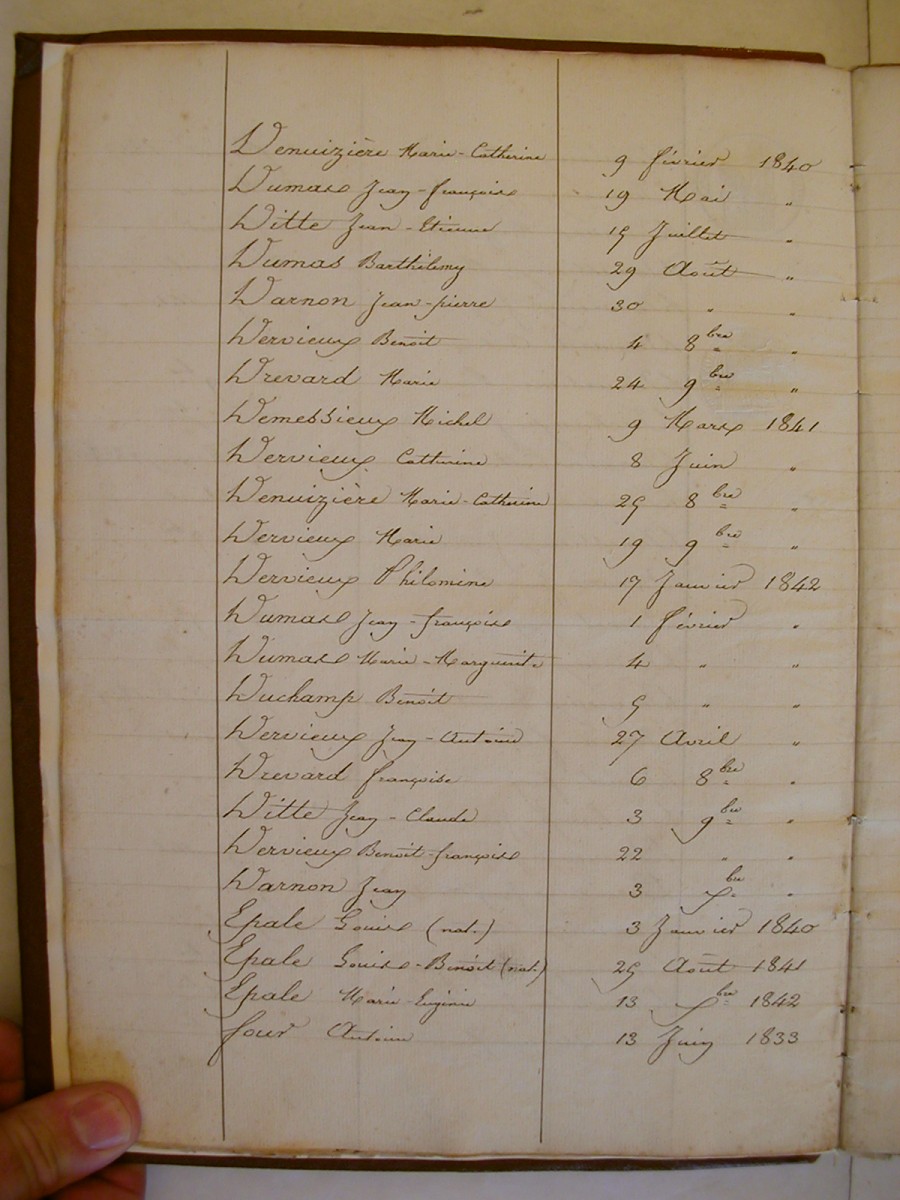 Denuizière Marie-Catherine 9 février 1840
Dumas Jean-françois 19 Mai "
Ditte Jean-Etienne 15 Juillet "
Dumas Barthélemy 29 Août "
Darnon Jean-pierre 30 " "
Dervieux Benoit 4 8bre "
Drevard Marie 24 9bre "
Demessieux Michel 9 Mars 1841
Dervieux Catherine 8 Juin "
Denuizière Marie-Catherine 25 8bre "
Dervieux Marie 19 9bre "
Dervieux Philomine 17 Janvier 1842
Dumas Jean-françois 1 février "
Dumas Marie-Marguerite 4 " "
Duchamp Benoit 5 " "
Dervieux Jean-Antoine 27 Avril "
Drevard françoise 6 8bre "
Ditte Jean-Claude 3 9bre "
Dervieux Benoit-françois 22 " "
Darnon Jean 3 xbre "
Epale Louis (nat.) 3 Janvier 1840
Epale Louis-Benoit (nat.) 25 Août 1841
Epale Marie-Eugénie 13 xbre 1842
four Antoine 13 Juin 1833